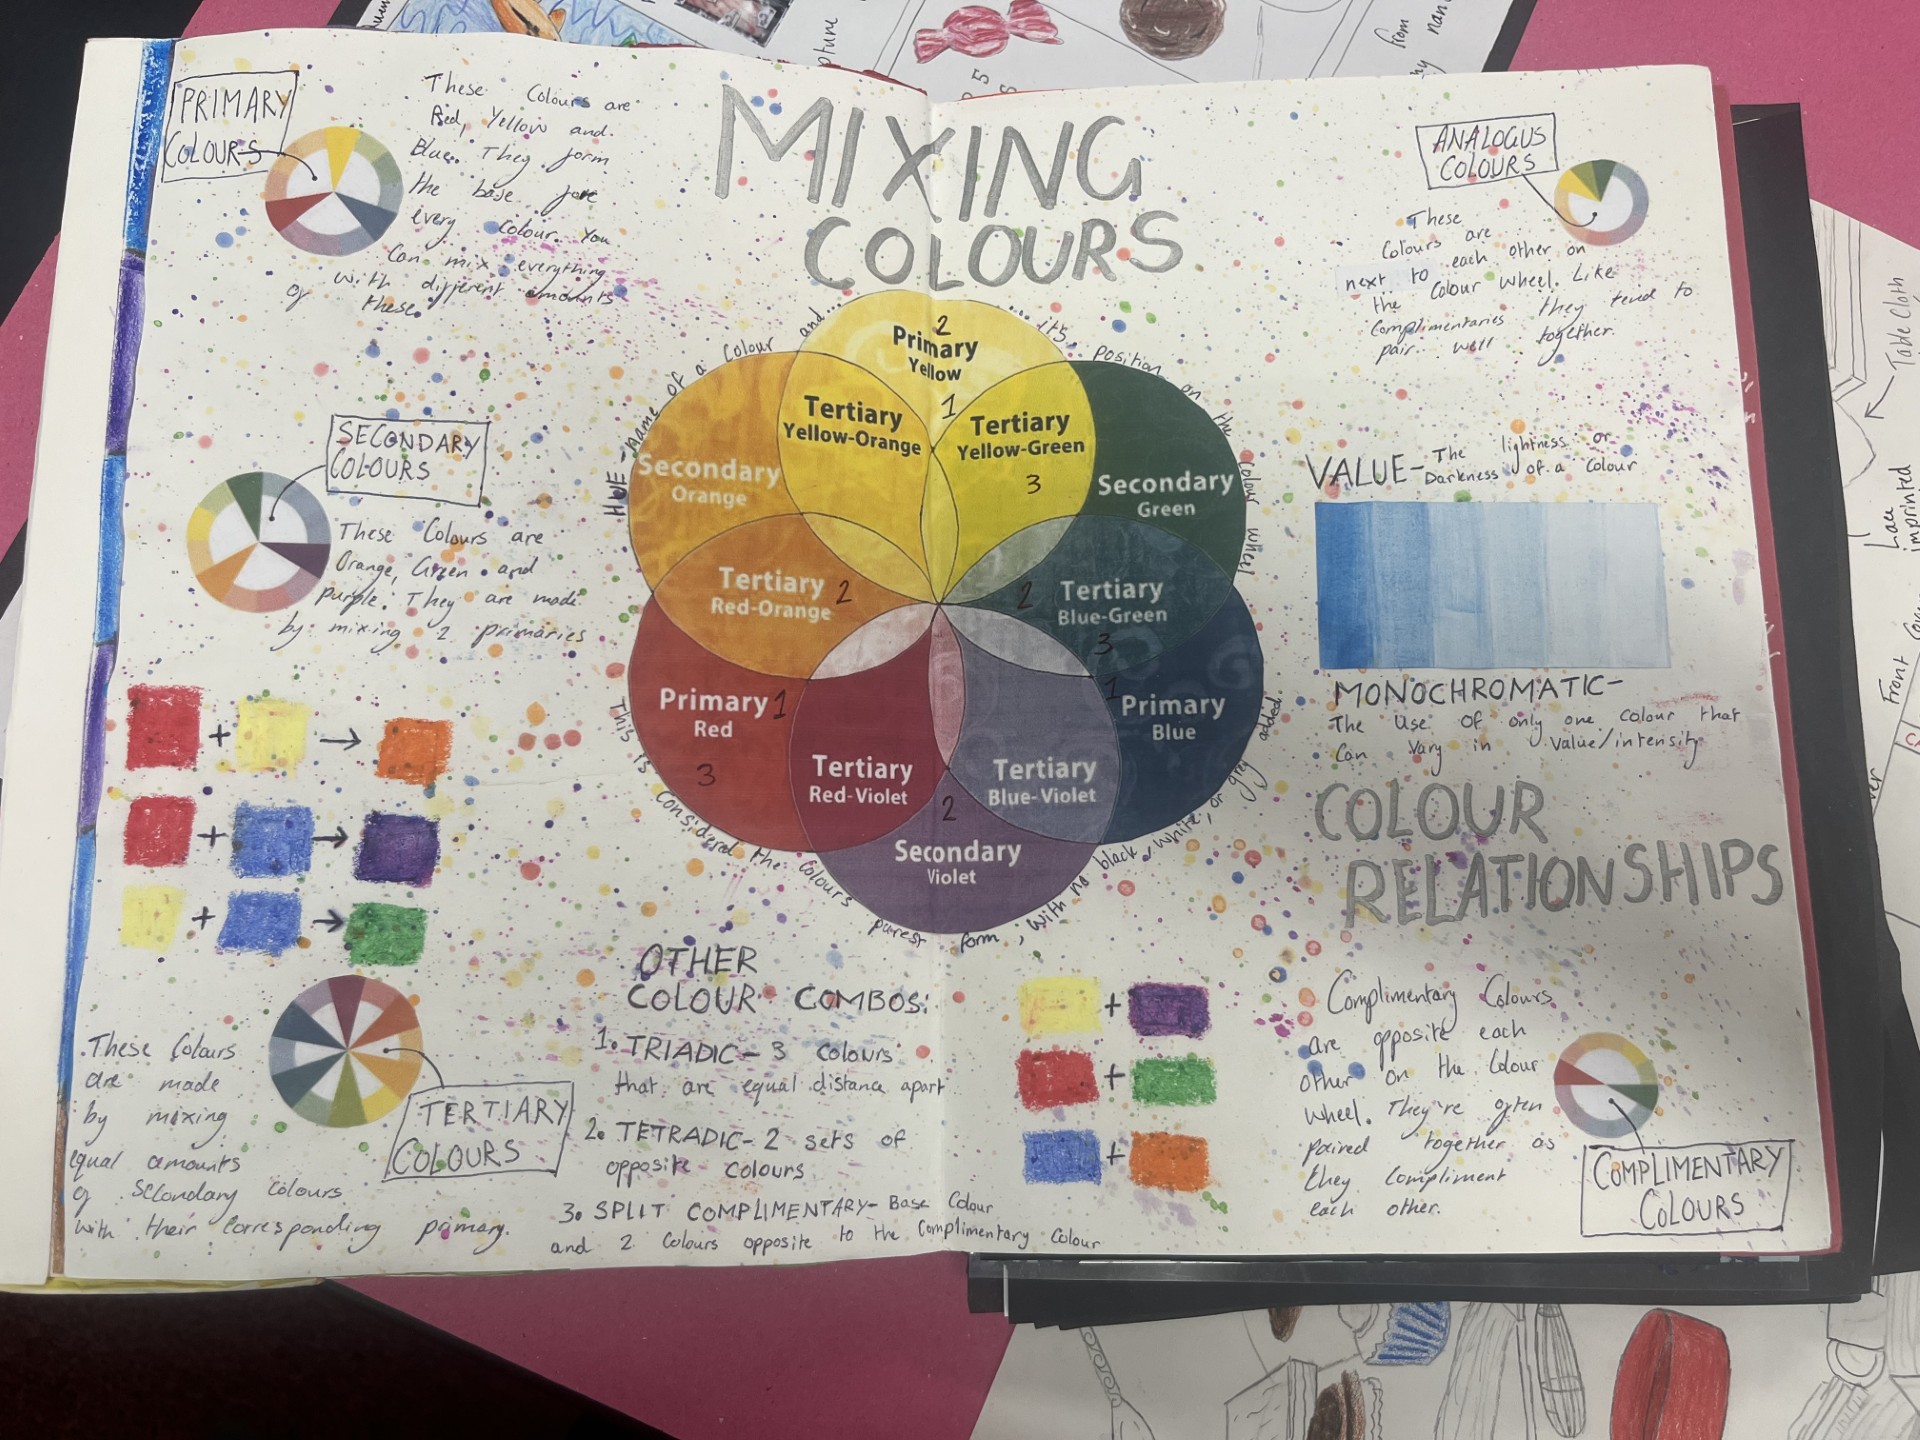 MIXING
COLOURS
PRIMARY
COLOURS
These Colours are
Red, Yellow and
Blue. They form
the base fore
every colour. You
Can mix everything
with different amounts
of these.
SECONDARY
COLOURS
These Colours are
Orange, Green and
purple. They are made
by mixing 2 primaries
+
+
+
These Colours
are made
by mixing
equal amounts
of Secondary colours
with their corresponding primary.
TERTIARY
COLOURS
HUE - name of a Colour and... its position on the Colour wheel
This is Considered the Colours purest form, with no black, white, or grey added.
2
Primary
Yellow
1
Tertiary
Yellow-Orange
Tertiary
Yellow-Green
3
Secondary
Orange
Secondary
Green
Tertiary
Red-Orange
2
2
Tertiary
Blue-Green
3
Primary
Red
1
3
1
Primary
Blue
Tertiary
Red-Violet
Tertiary
Blue-Violet
2
Secondary
Violet
OTHER
COLOUR COMBOS:
1. TRIADIC - 3 colours
that are equal distance apart
2. TETRADIC - 2 sets of
opposite colours
3. SPLIT COMPLIMENTARY - Base Colour
and 2 Colours opposite to the Complimentary Colour
ANALOGUS
COLOURS
These
Colours are
next to each other on
the Colour wheel. Like
Complimentaries they tend to
pair well together.
VALUE - The lightness or
Darkness of a Colour
MONOCHROMATIC -
The Use Of only one colour that
Can Vary in Value/intensity
COLOUR
RELATIONSHIPS
+
+
+
Complimentary Colours
are opposite each
other on the Colour
wheel. They're often
paired together as
they compliment
each other.
COMPLIMENTARY
COLOURS
Table Cloth
Lace
imprinted
Front
from